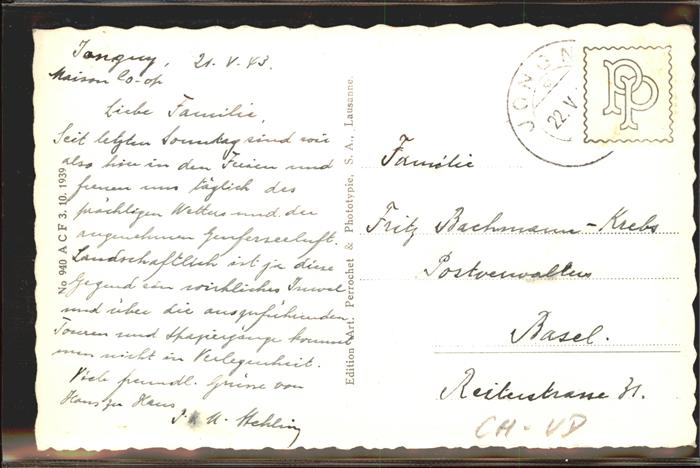 Jongny, 21. V. 43.
Maison Co-op
Liebe Familie,
Seit letzten Sonntag sind wir
also hier in den Ferien und
freuen uns täglich des
prächtigen Wetters und der
angenehmen Genferseeluft.
Landschaftlich ist ja diese
Gegend ein wirkliches Juwel
und über die auszuführenden
Touren und Spaziergänge kommt
man nicht in Verlegenheit.
Viele freundl. Grüsse von
Haus zu Haus
No 940 A C F 3. 10. 1939
Edition Art. Perrochet & Phototypie, S. A., Lausanne.
JONGN
22. V.
PP
Familie
Fritz Bachmann-Krebs
Postverwalters
Basel.
Reiterstrasse 31.
CH-VD